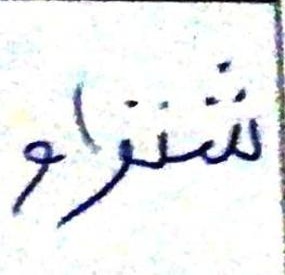 شنزاو